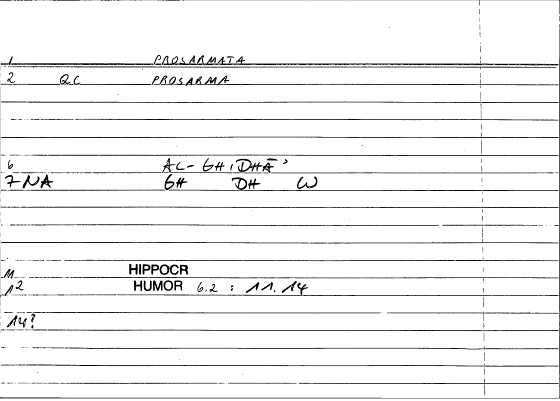 1 PROSARMATA
2 QC PROSARMA
6 AL-GHIDHĀʾ
7 NA GH DH W
11 HIPPOCR
12 HUMOR 6.2 : 11.14
14?